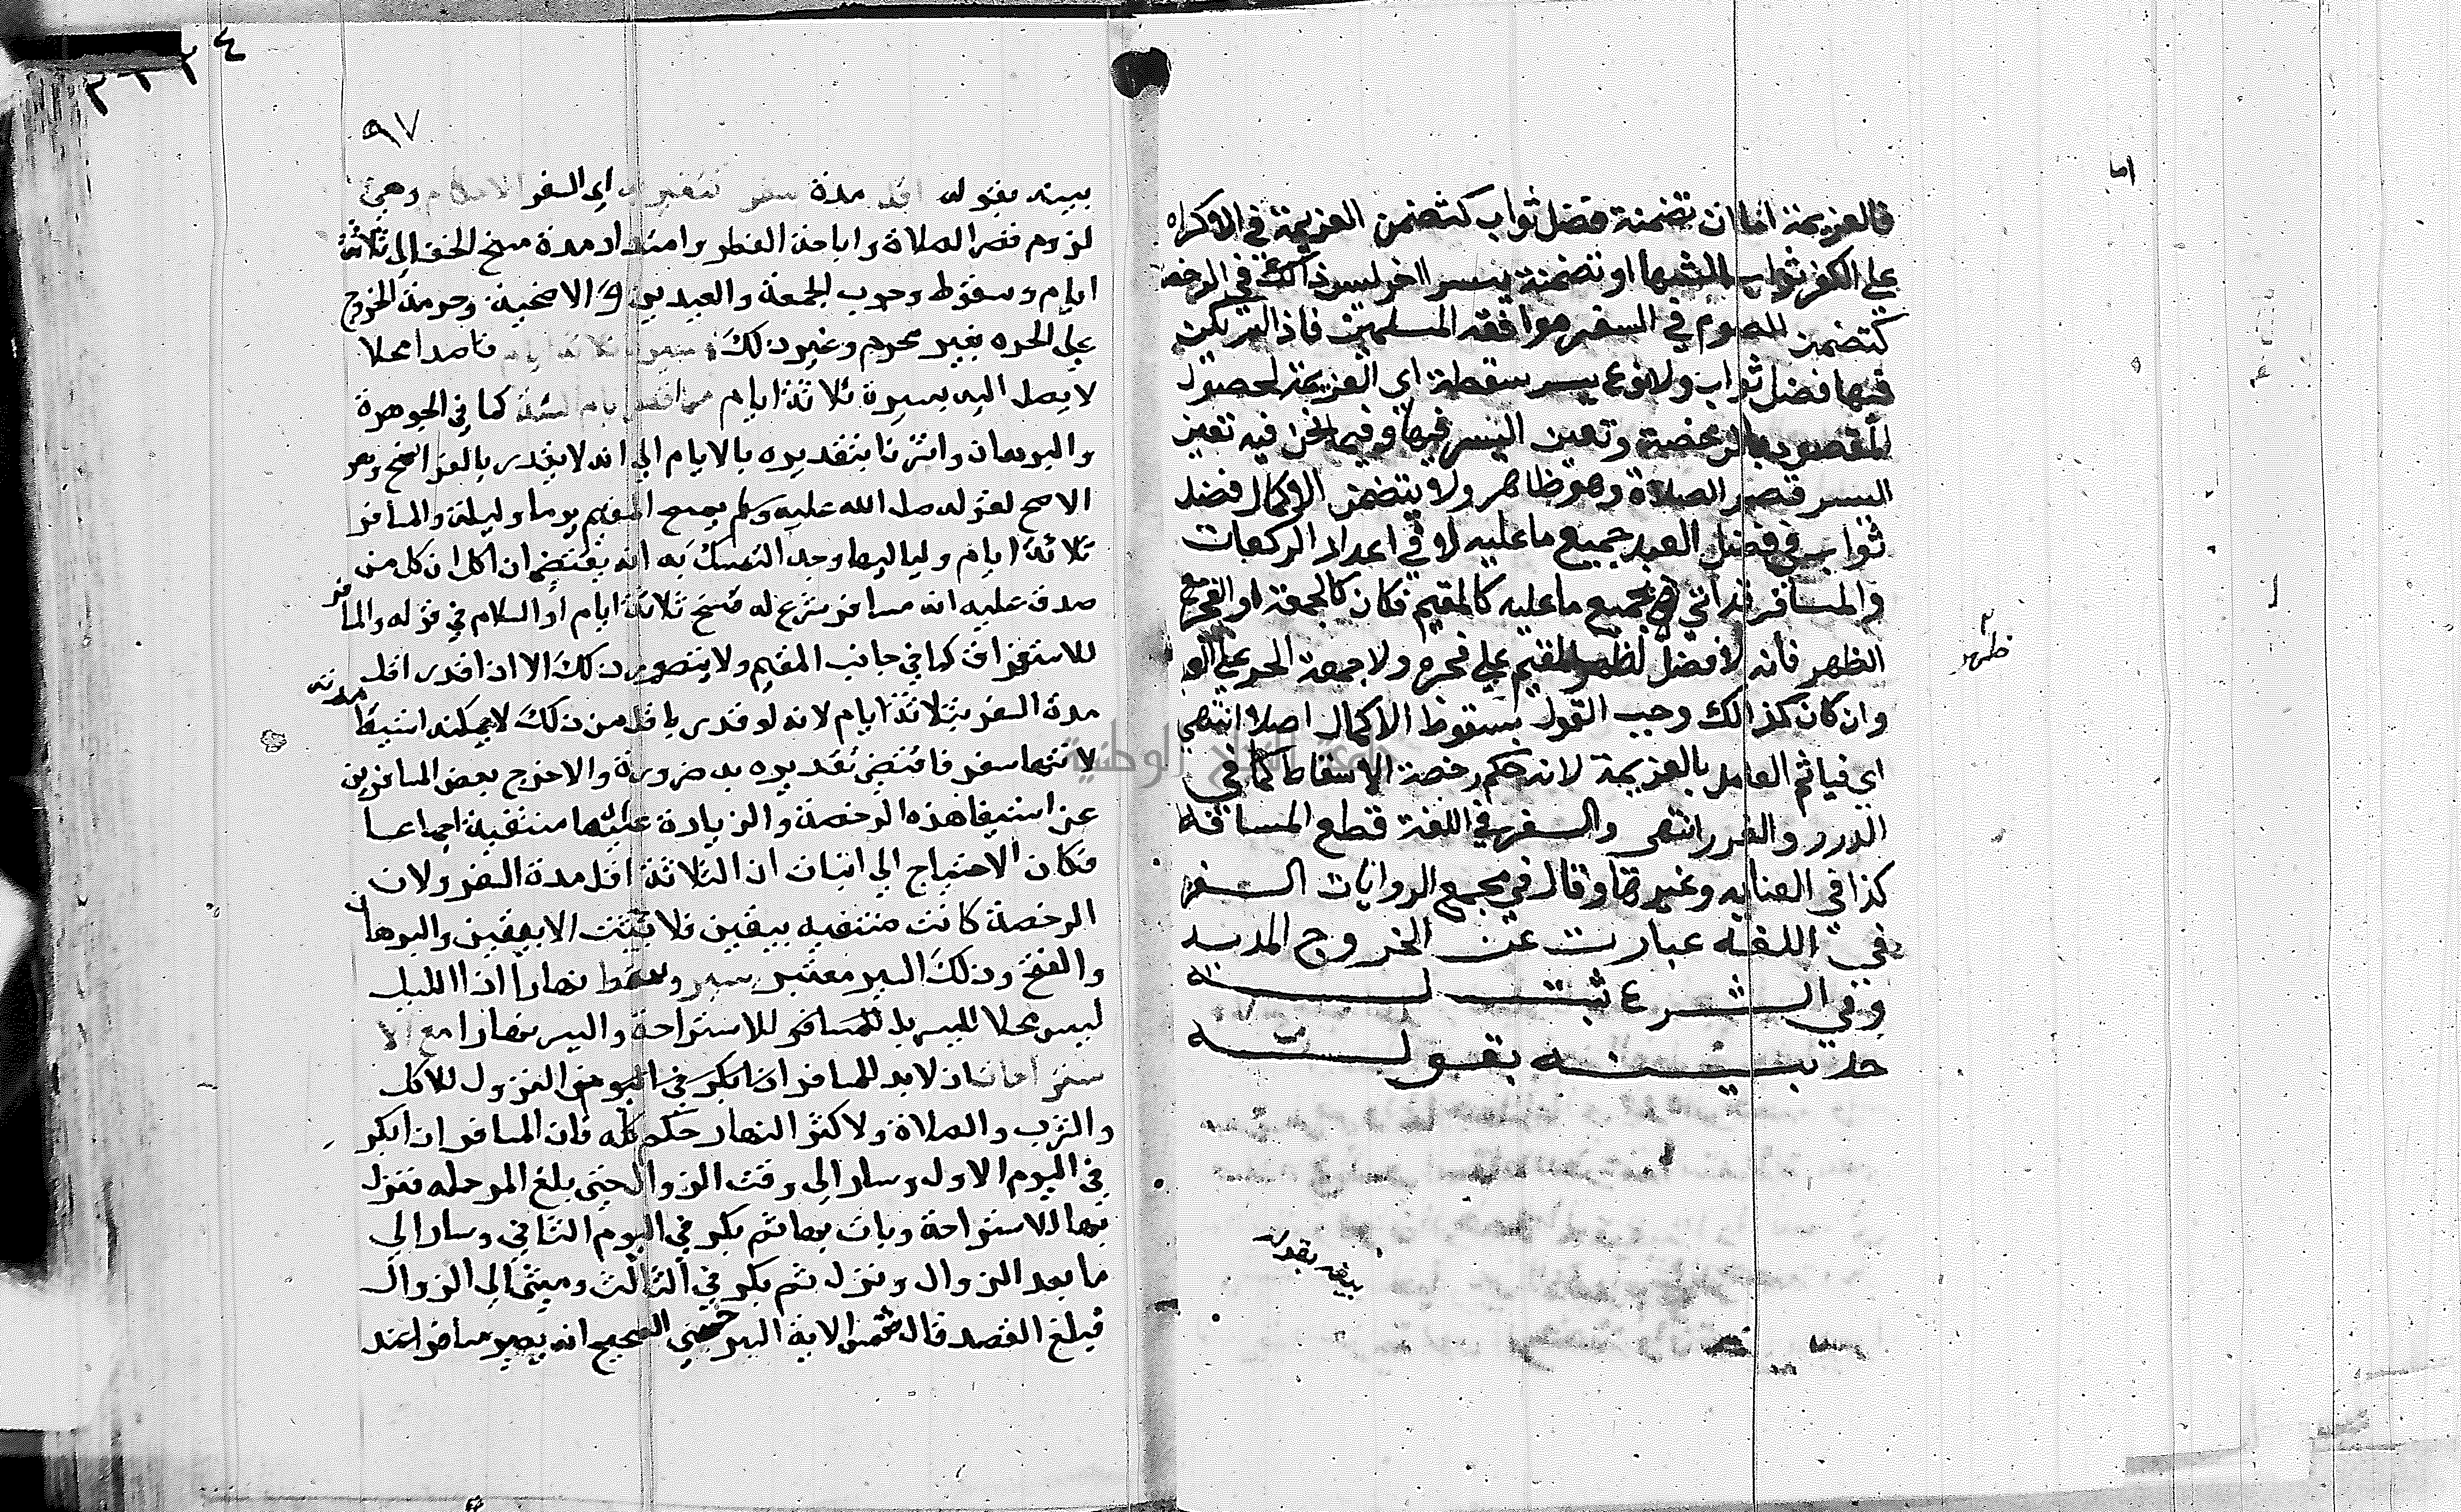 فالعزيمة اما ان تضمنة فضل ثواب كتضمن العزيمة في الاكراه
على الكفر ثواب او تضمنة يسر اخر ليس ذالك في الرخصة
كتضمن الصوم في السفر موافقه المسلمين فاذا لم يكن
فيها فضل ثواب ولا نوع يسر سقطة اي العزيمة لحصول
المقصود بالرخصة وتعين اليسر فيها وفيما نحن فيه تعين
اليسر قصر الصلاة وهو ظاهر ولا يتضمن الاكمال فضل
ثواب في فضل العبد جميع ما عليه لا في اعداد الركعات
والمسافر قد اتي بجميع ما عليه كالمقيم فكان كالجمعة او الفجر مع
الظهر فانه لا فضل لظهر المقيم على فجره ولا جمعة الحر على
وان كان كذالك وجب القول بسقوط الاكمال اصلا انتهى
اي فيأثم العامل بالعزيمة لانه حكم رخصة الاسقاط كما في
الدرر والغرر انتهى والسفر في اللغة قطع المسافة
كذا في العنايه وغيرها وقال في مجمع الروايات السفر
في اللغة عبارت عن الخروج المديد
وفي الشرع ثبت له
حد بينه بقوله
اما
ظهر
بينه بقوله
جامعة النجاح الوطنية
٩٧
بينه بقوله اقل مدة سفر تتغير به اي السفر الاحكام وهي
لزوم قصر الصلاة واباحة الفطر وامتداد مدة مسح الخف الى ثلاثة
ايام وسقوط وجوب الجمعة والعيدين والاضحية وحرمة الخروج
على الحره بغير محرم وغير ذلك مسيرة ثلاثة ايام قاصدا محلا
لا يصل اليه بسيره ثلاثة ايام من اقصر ايام السنة كما في الجوهرة
والبرهان واشرنا بتقديره بالايام الى انه لا يقدر بالفراسخ وهو
الاصح لقوله صلى الله عليه وسلم يمسح المقيم يوما وليلة والمسافر
ثلاثة ايام ولياليها وجه التمسك به انه يقتضي ان كل من
صدق عليه انه مسافر شرع له مسح ثلاثة ايام اذ السلام في قوله والمسافر
للاستغراق كما في جانب المقيم ولا يتصور ذلك الا اذا قدر اقل
مدة السفر بثلاثة ايام لانه لو قدر باقل من ذلك لا يمكنه استيفاء مدته
لانتهاء سفره فاقتضى تقديره به ضرورة والا خرج بعض المسافرين
عن استيفا هذه الرخصة والزيادة عليها منتفية اجماعا
فكان الاحتياج الي اثبات ان الثلاثة اقل مدة السفر ولان
الرخصة كانت منتفيه بيقين فلا تثبت الا بيقين والبرهان
والفتح وذلك السير معتبر بسير وسط نهارا اذ الليل
ليس محلا للسير بل للمسافر للاستراحة والسير نهارا مع الا
ستراحات اذ لا بد للمسافر ان ابكر في اليوم من النزول للاكل
والشرب والصلاة ولاكثر النهار حكم كله فان المسافر ان ابكر
في اليوم الاول وسار الى وقت الزوال حتى بلغ المرحله فنزل
بها للاستراحة وبات بها ثم بكر في اليوم الثاني وسار الى
ما بعد الزوال ونزل ثم بكر في الثالث ومشى الى الزوال
فبلغ القصد قال شمس الايمة السرخسي الصحيح انه يصير مسافرا عند